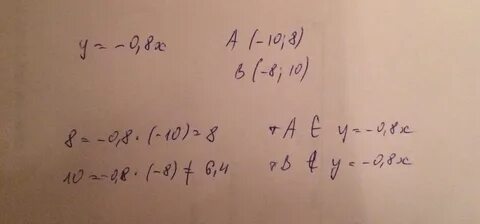 y = -0,8x
A (-10; 8)
B (-8; 10)
8 = -0,8 · (-10) = 8
т A ∈ y = -0,8x
10 = -0,8 · (-8) ≠ 6,4
т B ∉ y = -0,8x